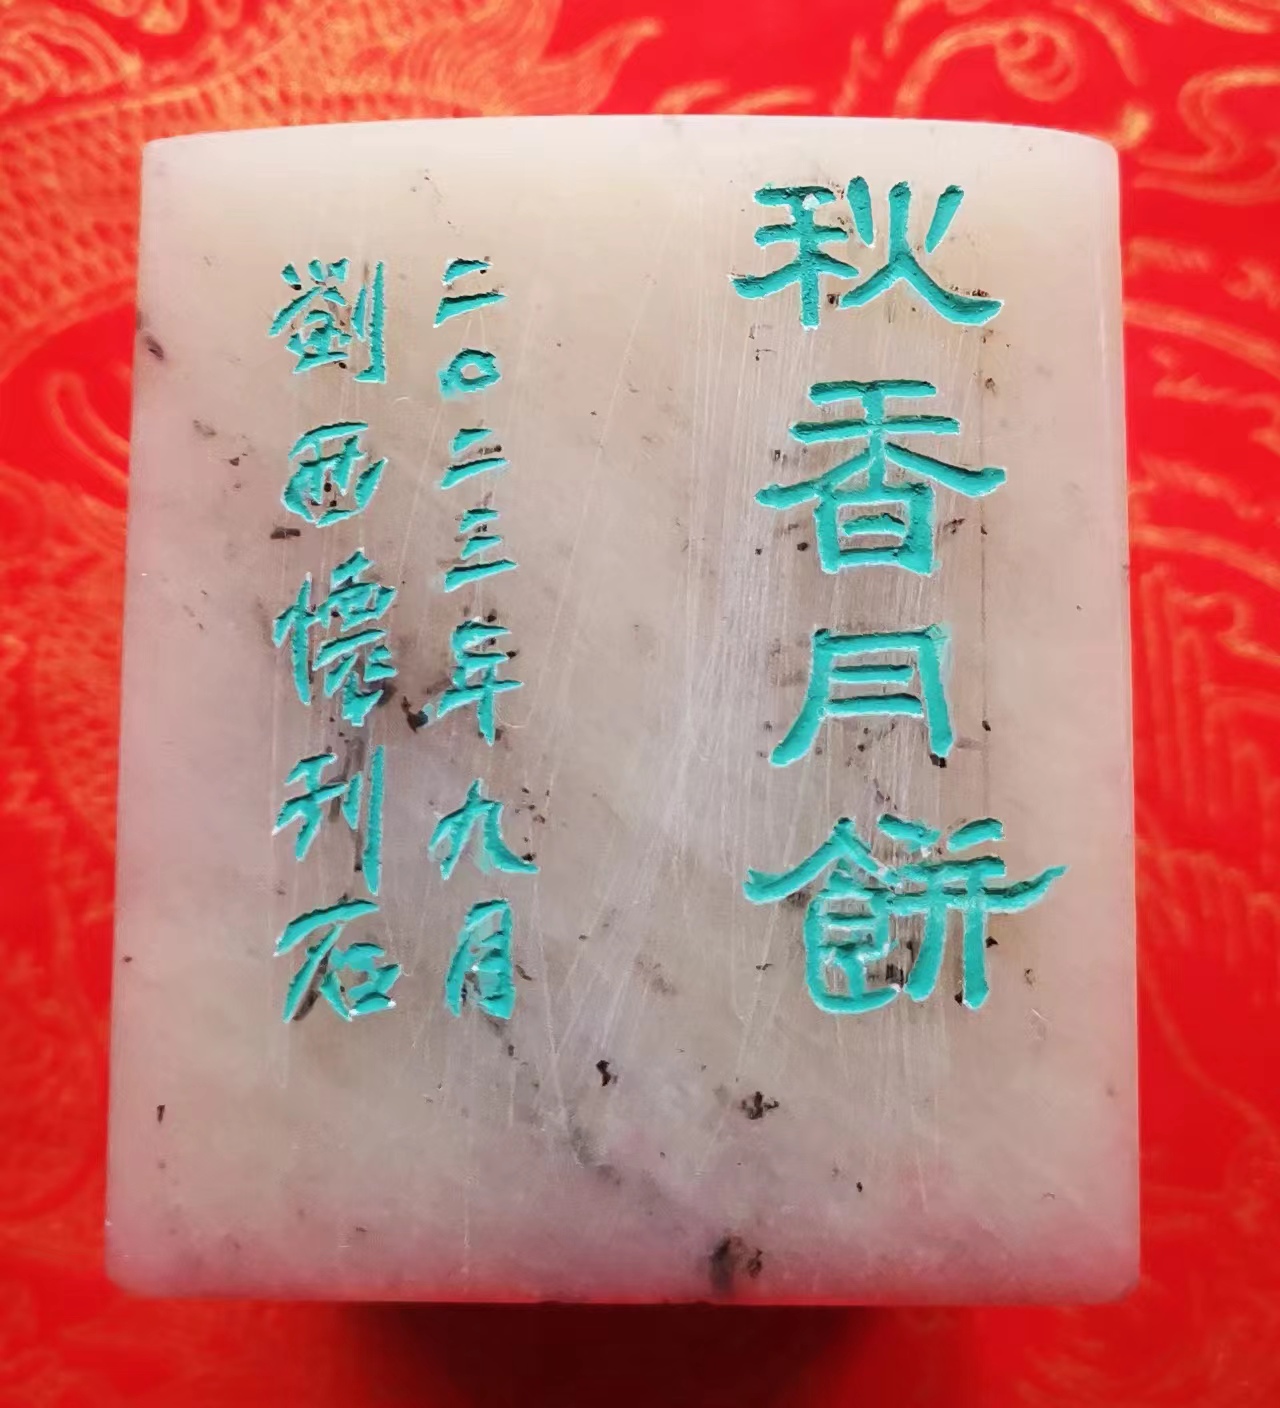 秋香月餅
二〇二三年九月
劉西懷刊石